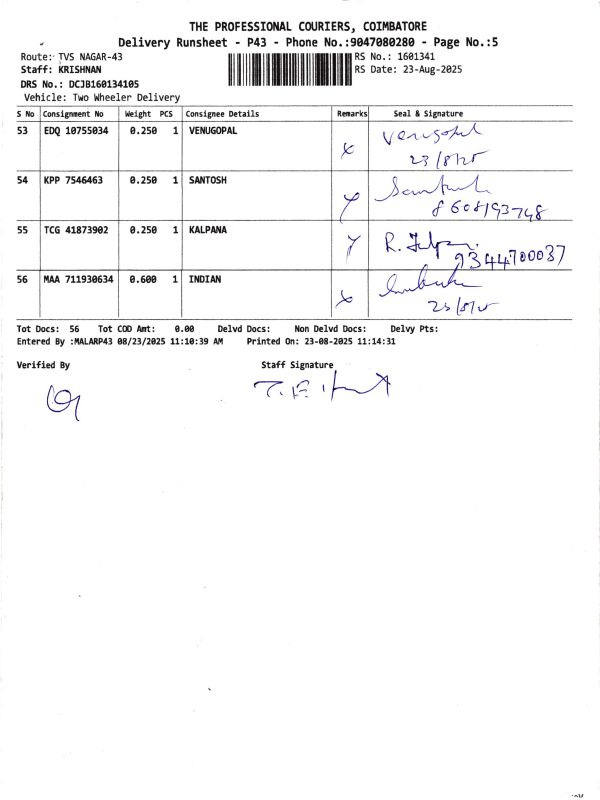 THE PROFESSIONAL COURIERS, COIMBATORE
Delivery Runsheet - P43 - Phone No.:9047080280 - Page No.:5
Route: TVS NAGAR-43 RS No.: 1601341
Staff: KRISHNAN RS Date: 23-Aug-2025
DRS No.: DCJB160134105
Vehicle: Two Wheeler Delivery
S No Consignment No Weight PCS Consignee Details Remarks Seal & Signature
53 EDQ 10755034 0.250 1 VENUGOPAL Venugopal
23/8/25
54 KPP 7546463 0.250 1 SANTOSH
8608193748
55 TCG 41873902 0.250 1 KALPANA R.
9344700037
56 MAA 711930634 0.600 1 INDIAN
23/8/25
Tot Docs: 56 Tot COD Amt: 0.00 Delvd Docs: Non Delvd Docs: Delvy Pts:
Entered By :MALARP43 08/23/2025 11:10:39 AM Printed On: 23-08-2025 11:14:31
Verified By Staff Signature